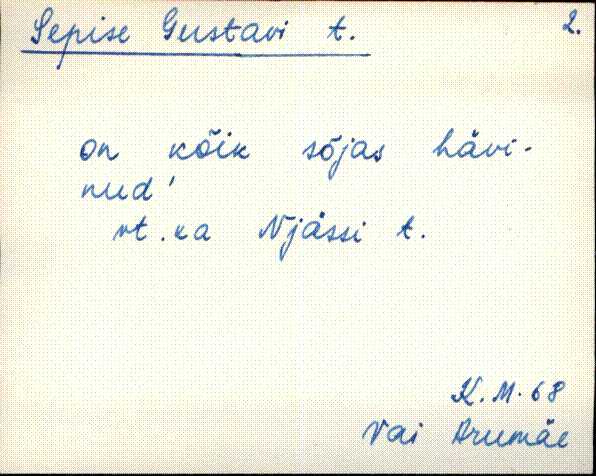 Sepise Gustavi t. 2.
on kõik sõjas hävi-
nud'
vt. ka Njässi t.
K. M. 68
Vai Arumäe